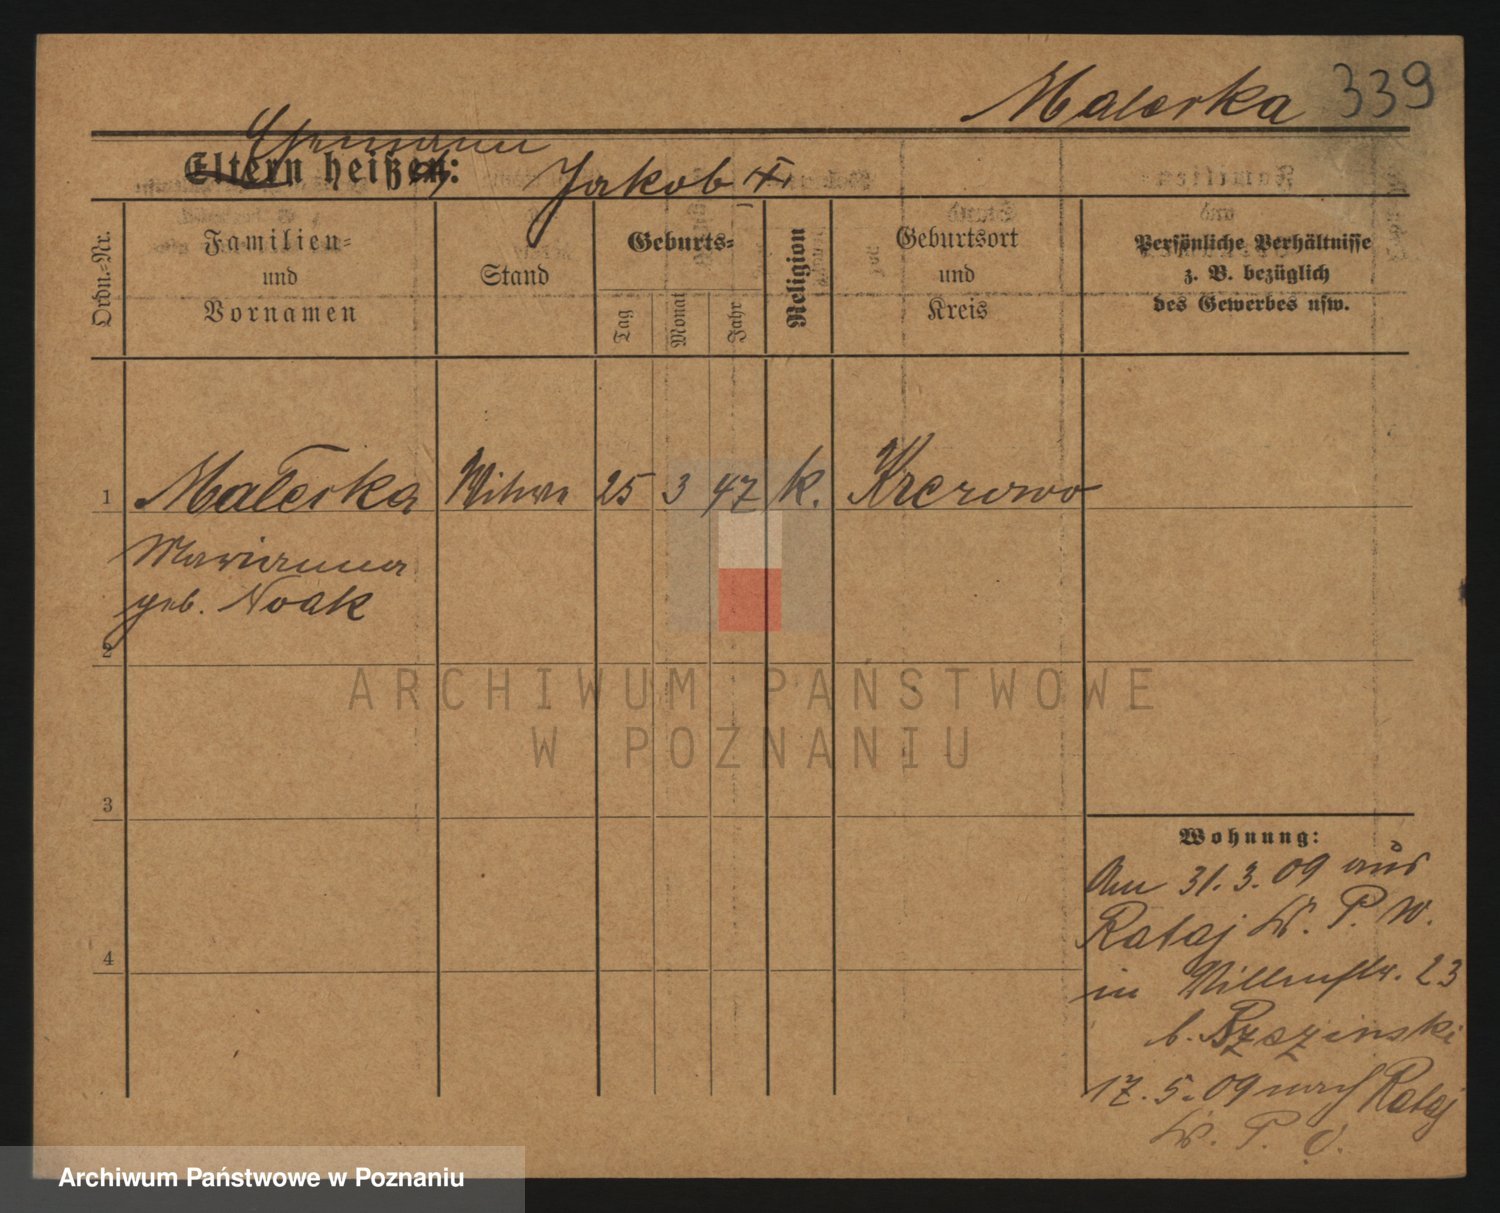 Malerka 339
Ehemann
Eltern heißen: Jakob
Ordn.-Nr.
Familien-
und
Vornamen
Stand
Geburts-
Tag
Monat
Jahr
Religion
Geburtsort
und
Kreis
Persönliche Verhältnisse
z. B. bezüglich
des Gewerbes usw.
1 Malerka Witwe 25 3 47 k. Krerowo
Marianna
geb. Noak
2
ARCHIWUM PAŃSTWOWE
W POZNANIU
3
Wohnung:
Am 31.3.09 aus
Rataj Kr. P. W.
4
in Villenstr. 23
b.
17.5.09 nach Rataj
Kr. P. O.
Archiwum Państwowe w Poznaniu